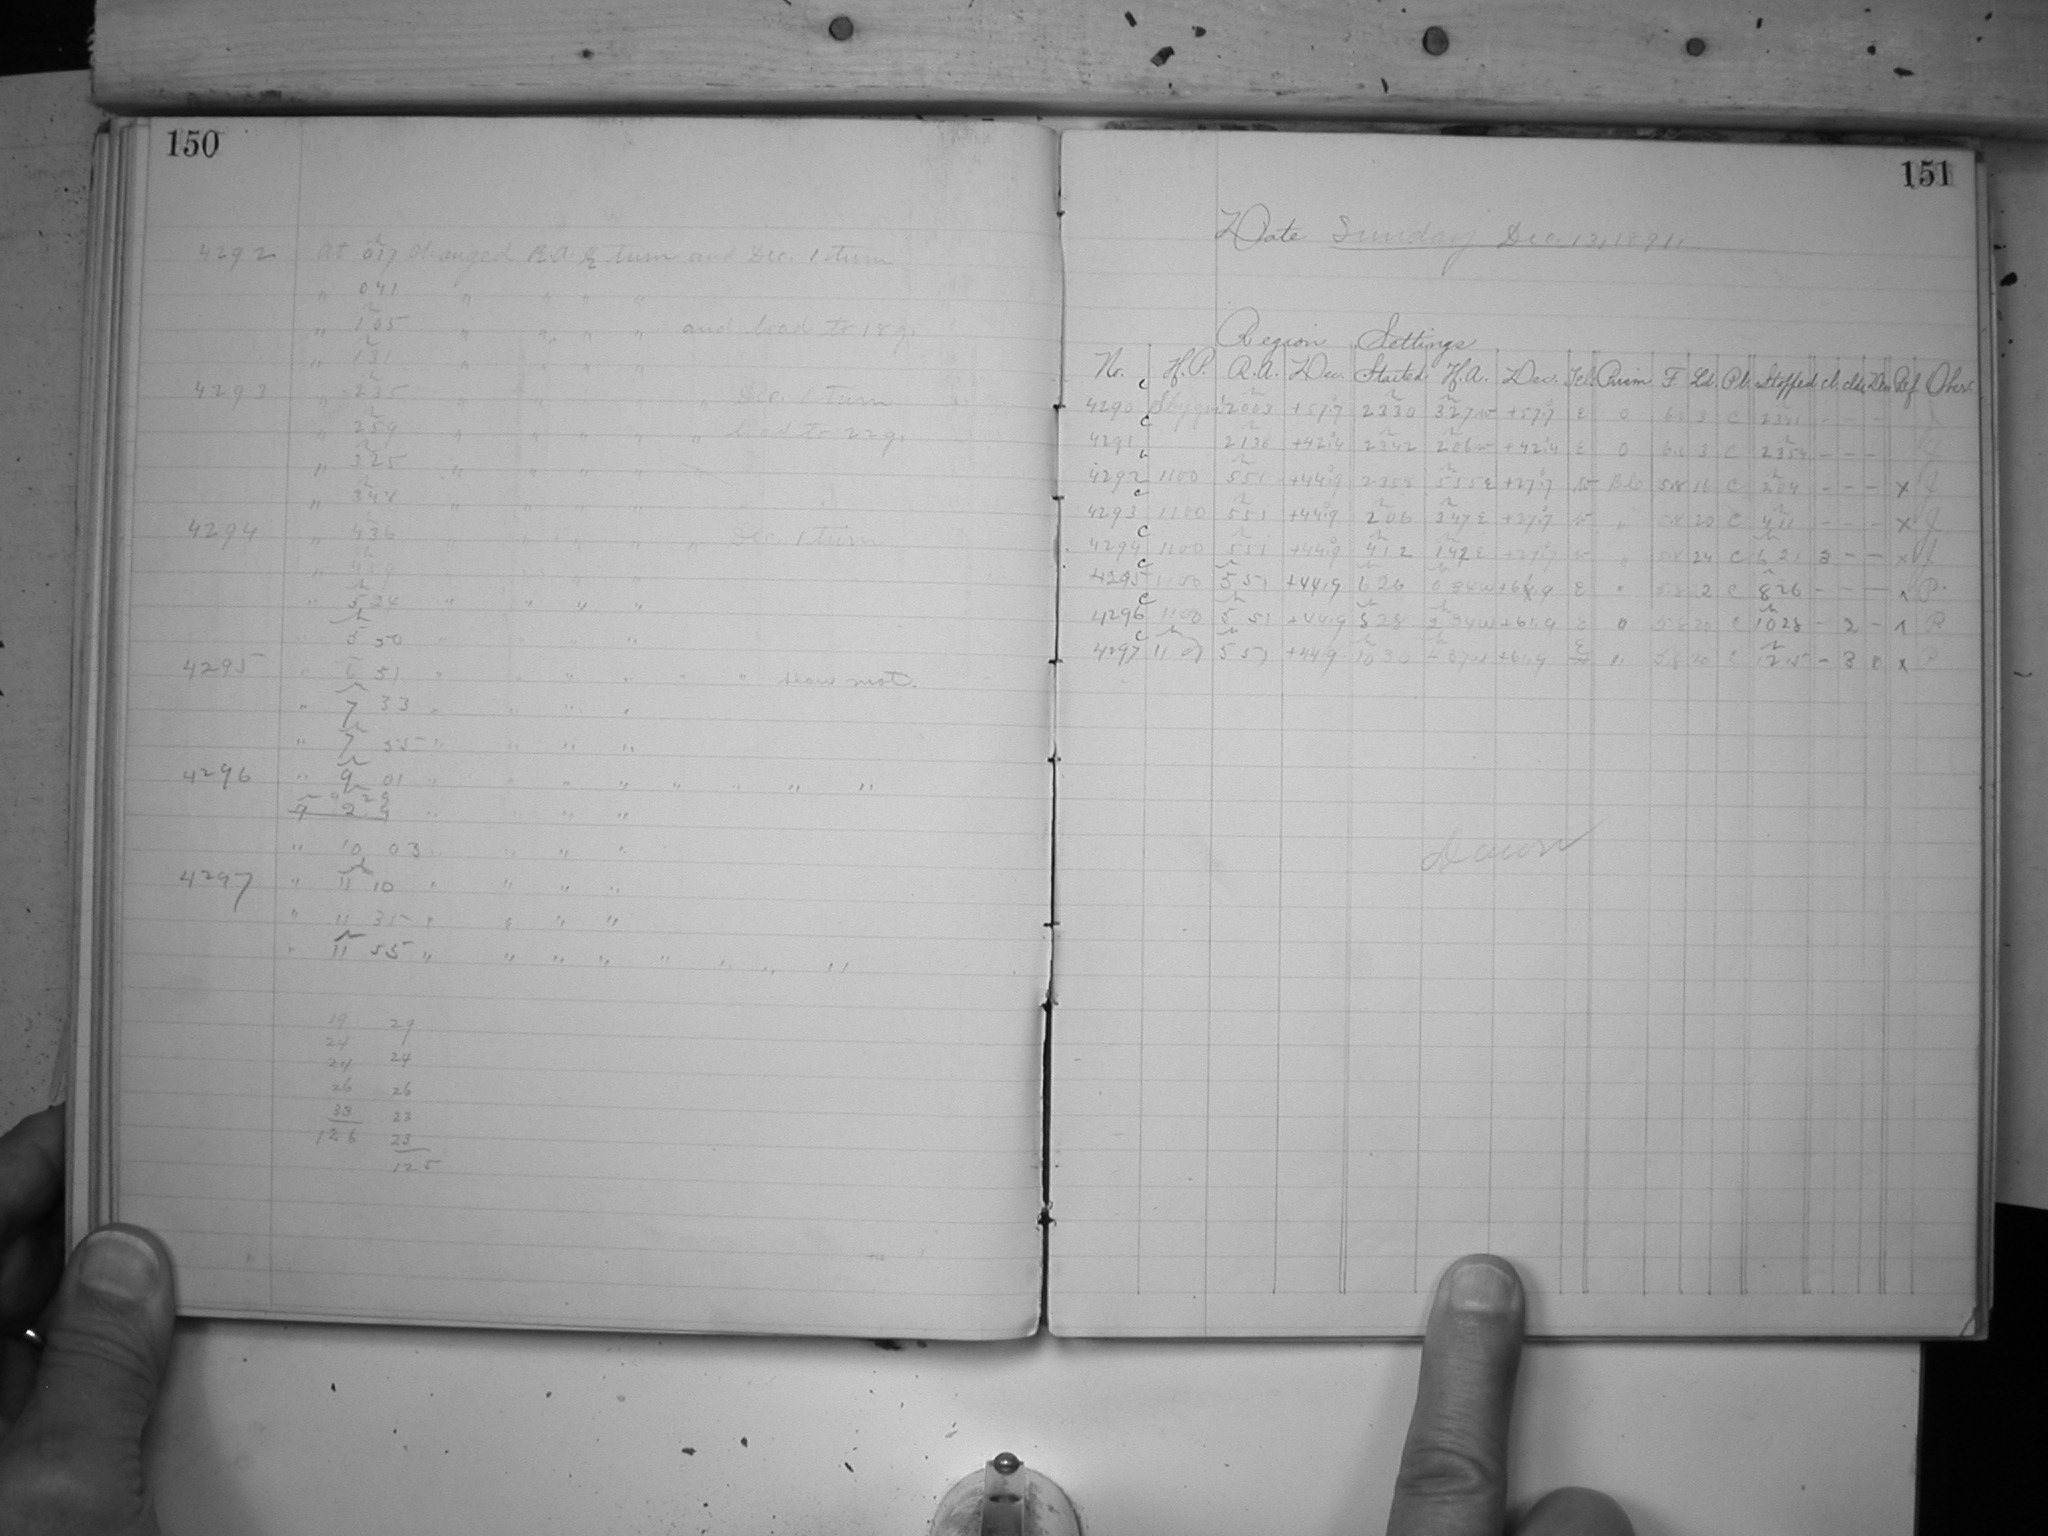 150
4292 At 017 changed R.A. ½ turn and Dec. 1 turn
" 041 " " " "
" 105 " " " " and lead to 189.
" 131 " " " "
4293 " 235 " " " " " Dec. 1 turn
" 259 " " " " " lead to 229.
" 325 " " " "
" 348 " " " "
4294 " 436 " " " " " Dec. 1 turn
" " " " "
" 524 " " " "
" 5 50 " " " "
4295 " 6 51 " " " " " " slow mot.
" 7 33 " " " "
" 7 55 " " " "
4296 " 9 01 " " " " " " " "
9 29
" 10 03 " " " "
4297 " 11 10 " " " "
" 11 35 " " " "
" 11 55 " " " " " " " "
19 29
24 24
24 26
26 23
33 23
126 125
151
Date Sunday Dec. 13, 1891.
Region Settings
No. H.P. R.A. Dec. Started H.A. Dec. Tel. Prism F. Ld. Pl. Stopped cl. clds Dew Ref. Obsr.
4290 c 2003 +57.7 2330 327w +57.7 E 0 6.0 3 C 2341 - - -
4291 c 2138 +42.4 2342 206w +42.4 E 0 6.0 3 C 2354 - - -
4292 1100 551 +44.9 2355 555E +27.7 W 5.8 16 C 204 - - - x J
4293 c 1100 551 +44.9 206 347E +27.7 W " 5.8 20 C 411 - - - x J
4294 c 1100 551 +44.9 412 142E +27.7 W " 5.8 24 C 621 3 - - x J
4295 c 1100 5 51 +44.9 626 0 34w +61.9 E " 5.8 C 826 - - - P
4296 c 1100 5 51 +44.9 828 2 34w +61.9 E 0 5.8 20 C 1028 - 2 - P
4297 c 11 0 5 51 +44.9 10 30 4 37w +61.9 E " 5.8 20 C 12 15 - 3 0 x P
Dawn